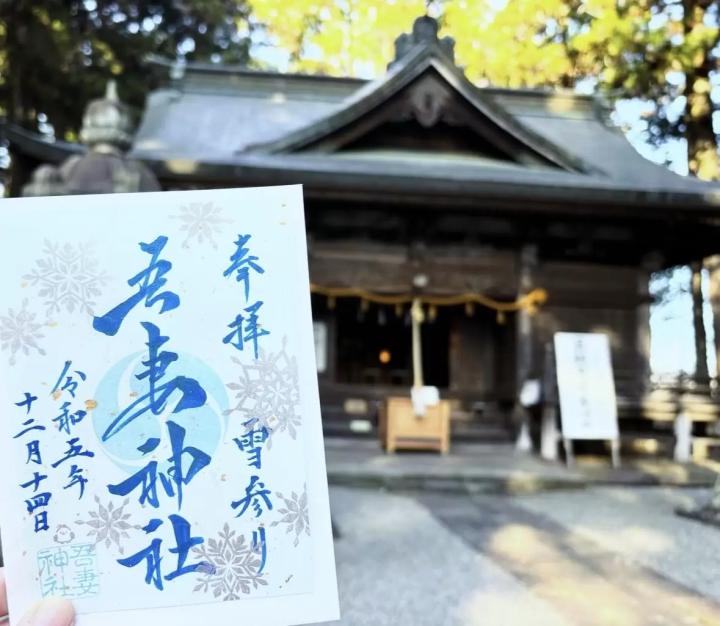 奉拝　雪参り
吾妻神社
令和五年
十二月十四日
吾妻
神社